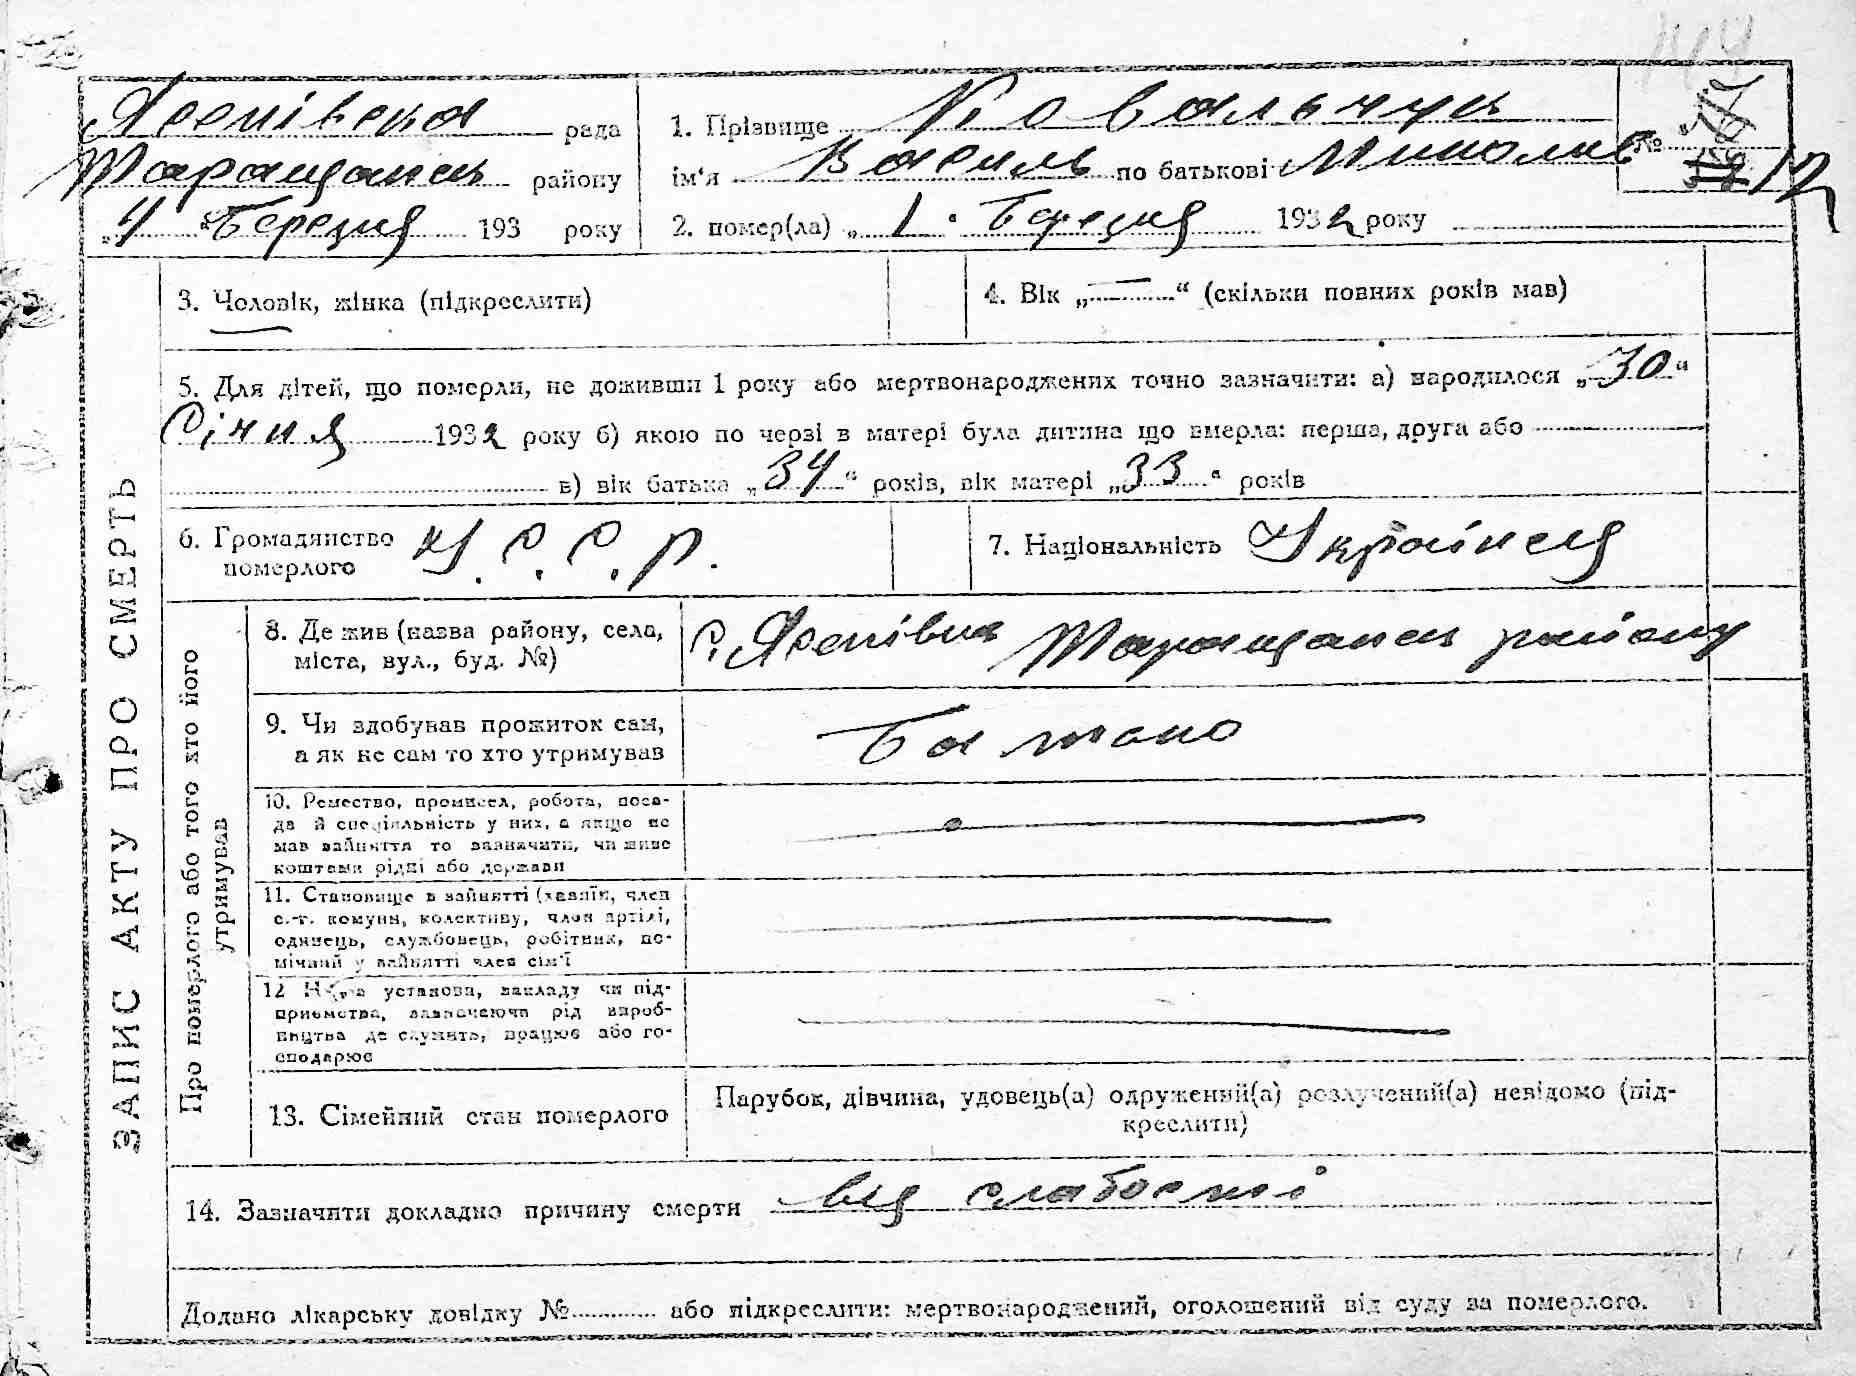 Ясенівска рада
Таращанск району
„4“ Березня 193 року
1. Прізвище Ковальчук
ім'я Василь по батькові Миколив
№ 12
2. помер(ла) „1“ Березня 1932 року
ЗАПИС АКТУ ПРО СМЕРТЬ
3. Чоловік, жінка (підкреслити)
4. Вік „—“ (скільки повних років мав)
5. Для дітей, що померли, не доживши 1 року або мертвонароджених точно зазначити: а) народилося „30“
Січня 1932 року б) якою по черзі в матері була дитина що вмерла: перша, друга або
в) вік батька „34“ років, вік матері „33“ років
6. Громадянство
померлого
У.С.С.Р.
7. Національність Українец
Про померлого або того хто його
утримував
8. Де жив (назва району, села,
міста, вул., буд. №)
с. Ясенівка Таращанск району
9. Чи здобував прожиток сам,
а як не сам то хто утримував
Батько
10. Ремество, промисел, робота, поса-
да й спеціяльність у них, а якщо не
мав зайняття то зазначити, чи живе
коштами рідні або держави
11. Становище в зайнятті (хазяїн, член
с.-г. комуни, колективу, член артілі,
одинець, службовець, робітник, по-
мічний у зайнятті член сім'ї
12 Назва установи, закладу чи під-
приємства, зазначаючи рід вироб-
ництва де служить, працює або го-
сподарює
13. Сімейний стан померлого
Парубок, дівчина, удовець(а) одружений(а) розлучений(а) невідомо (під-
креслити)
14. Зазначити докладно причину смерти від слабости
Додано лікарську довідку № або підкреслити: мертвонароджений, оголошений від суду за померлого.